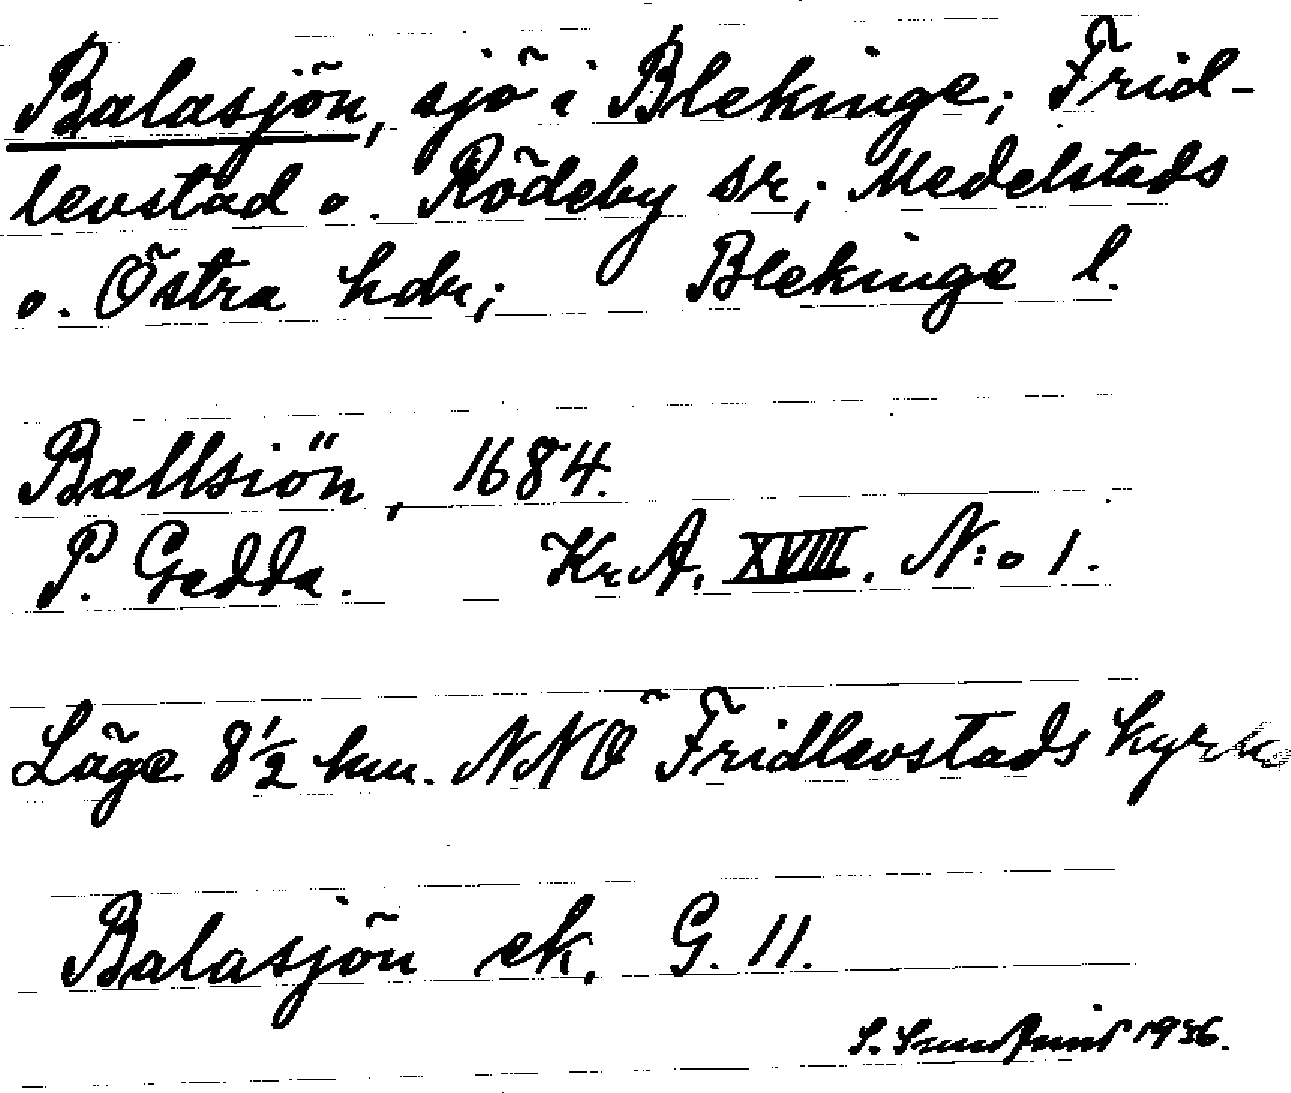 Balasjön, sjö i Blekinge; Frid-
levstad o. Rödeby sr; Medelstads
o. Östra hdr; Blekinge l.
Ballsiön, 1684.
P. Gedda. Kr. A. XVIII. N:o 1.
Läge 8 1/2 km. NNÖ Fridlevstads kyrka
Balasjön ek. G. 11.
S. 1936.